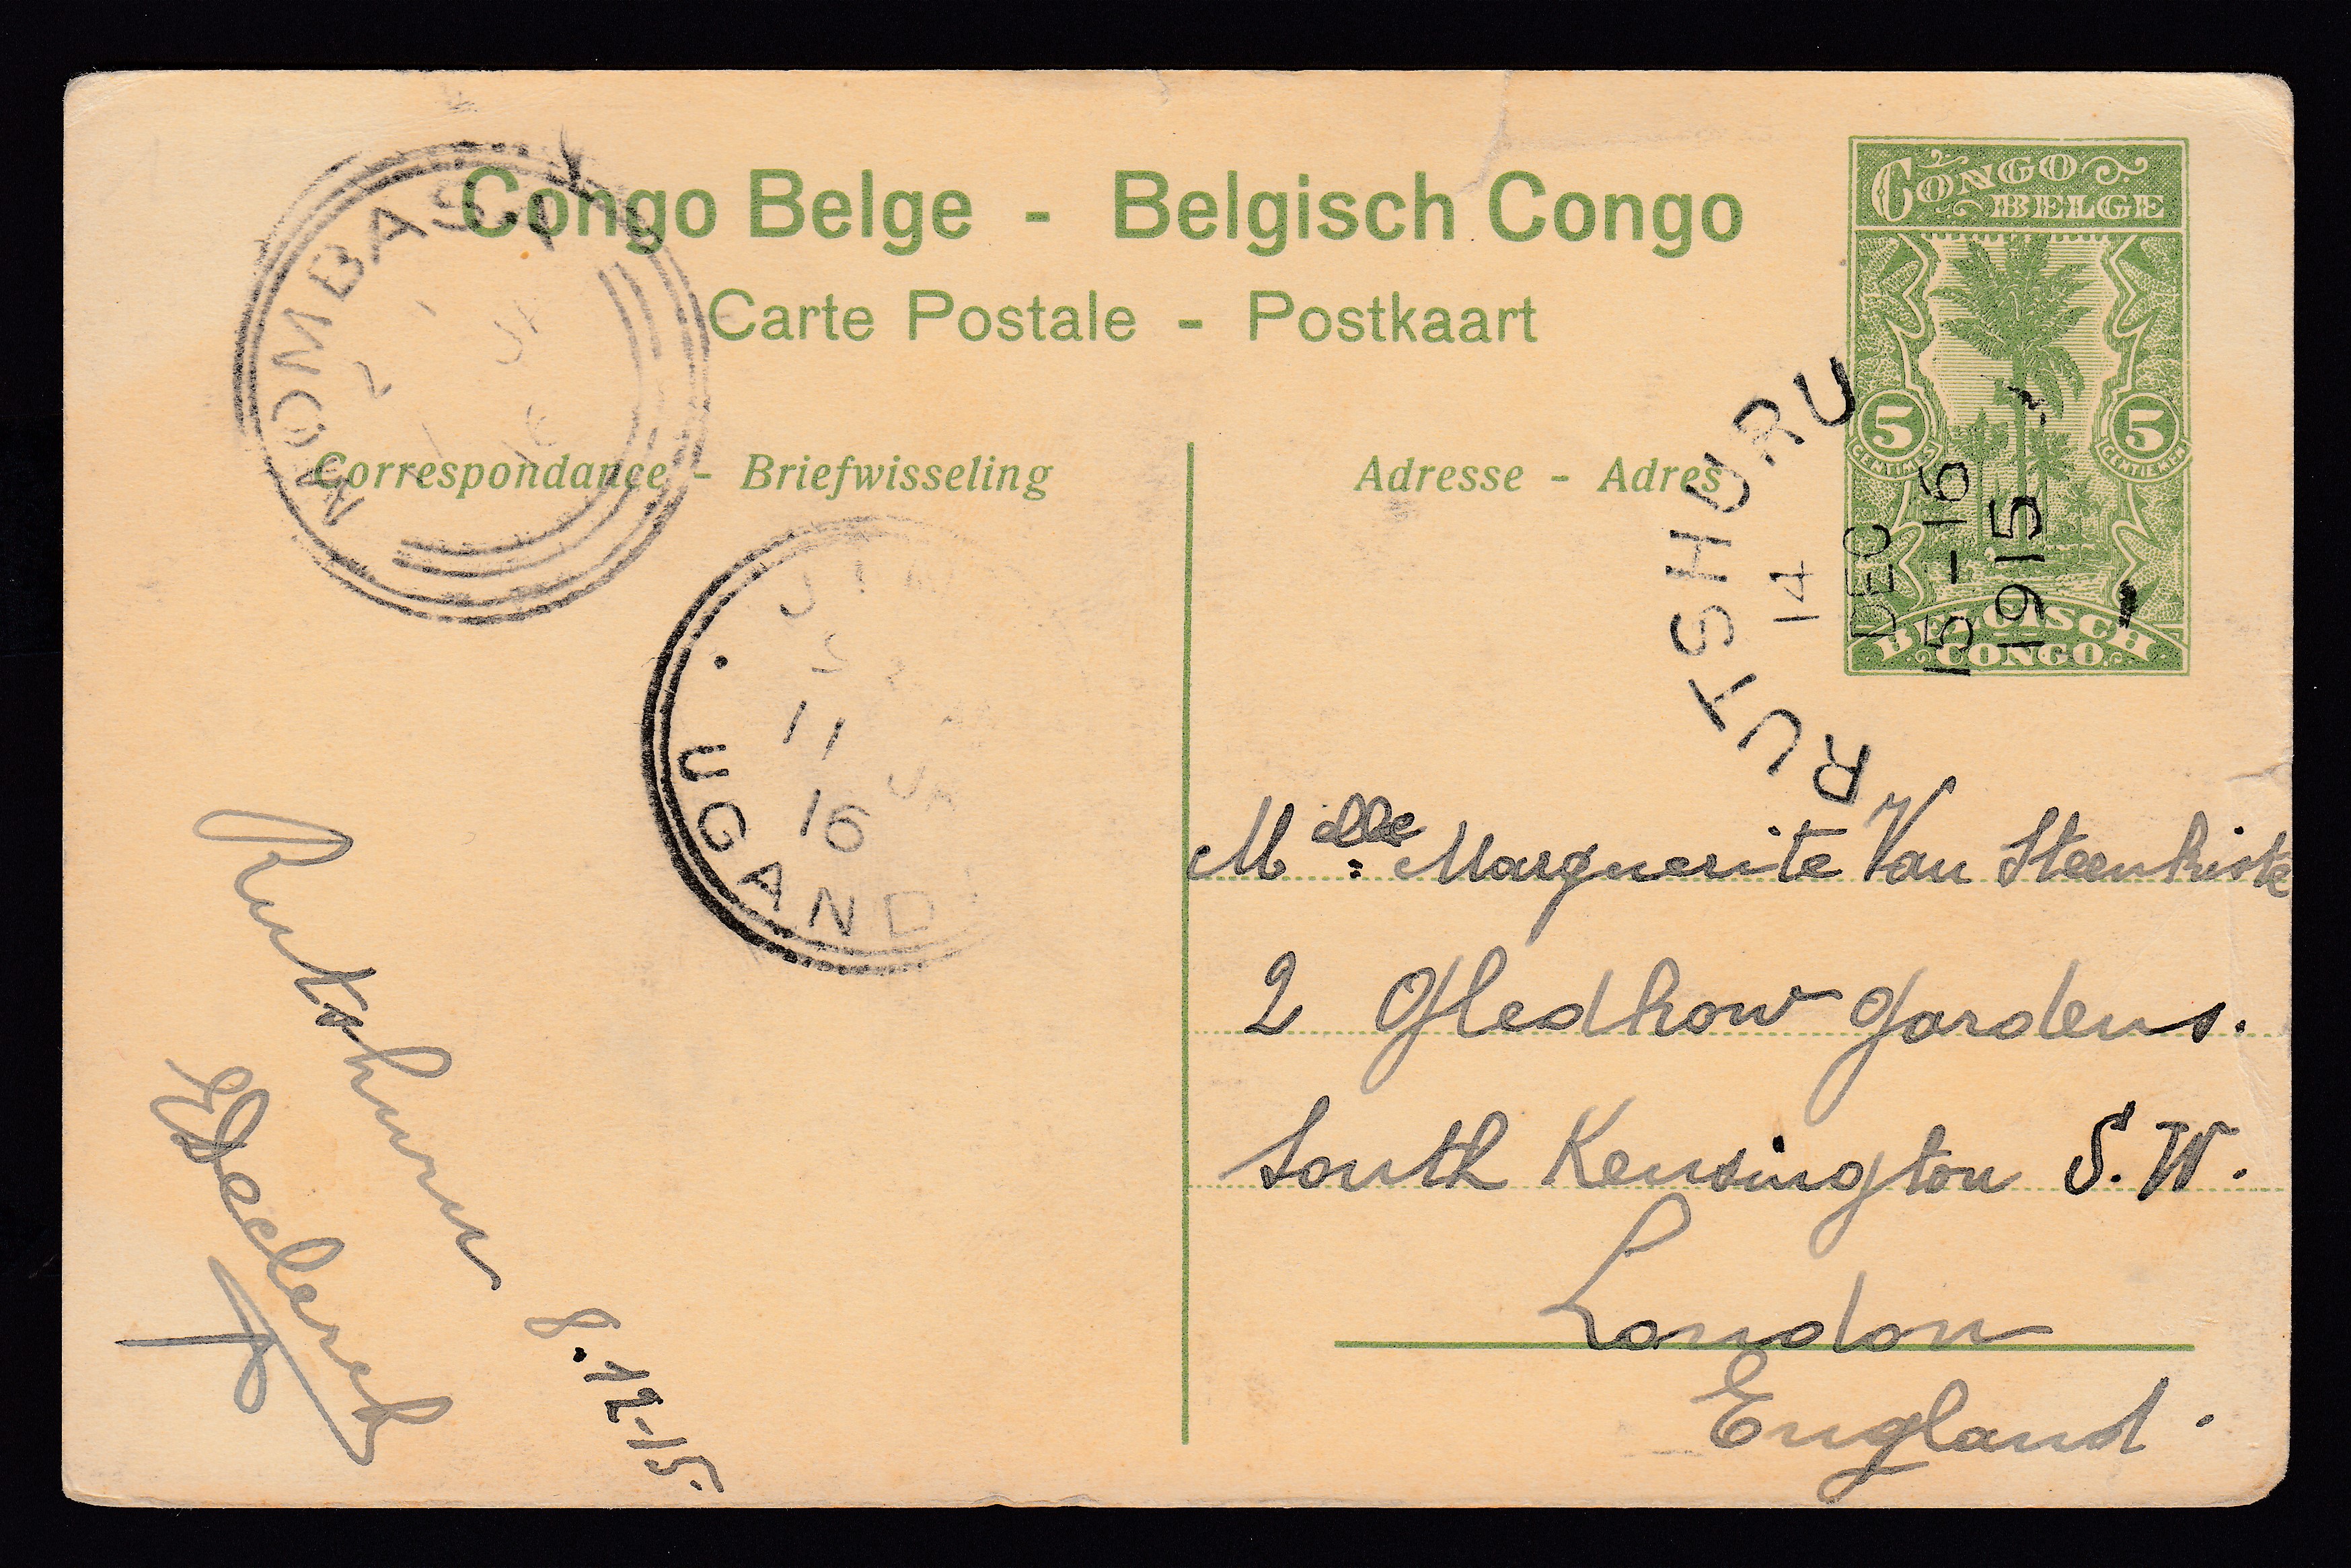 Congo Belge - Belgisch Congo
Carte Postale - Postkaart
Correspondance - Briefwisseling
Adresse - Adres
CONGO
BELGE
5 5
CENTIMES CENTIEMEN
BELGISCH
CONGO
MOMBASA
JA
16
RUTSHURU
14
DEC
15-16
1915
11 JA
16
UGAND
Melle Marguerite Van Steenkiste
2 Gledhow Gardens.
South Kensington S.W.
London
England.
Rutshuru 8.12-15.